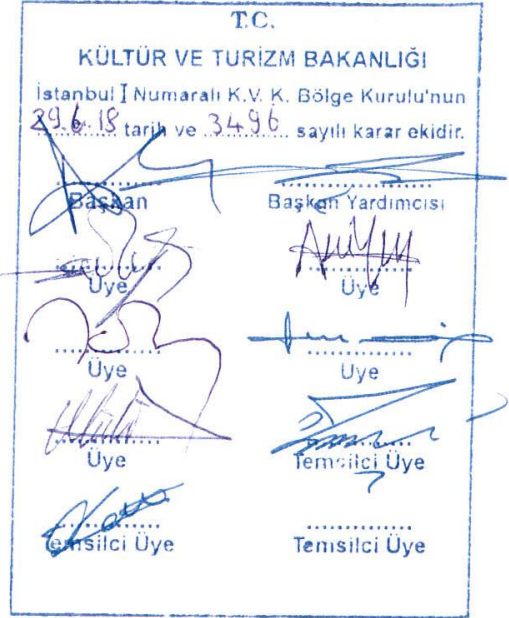 T.C.
KÜLTÜR VE TURİZM BAKANLIĞI
İstanbul I Numaralı K.V. K. Bölge Kurulu'nun
29.6.18 tarih ve 3496 sayılı karar ekidir.
Başkan Başkan Yardımcısı
Üye Üye
Üye Üye
Üye Temsilci Üye
Temsilci Üye Temsilci Üye